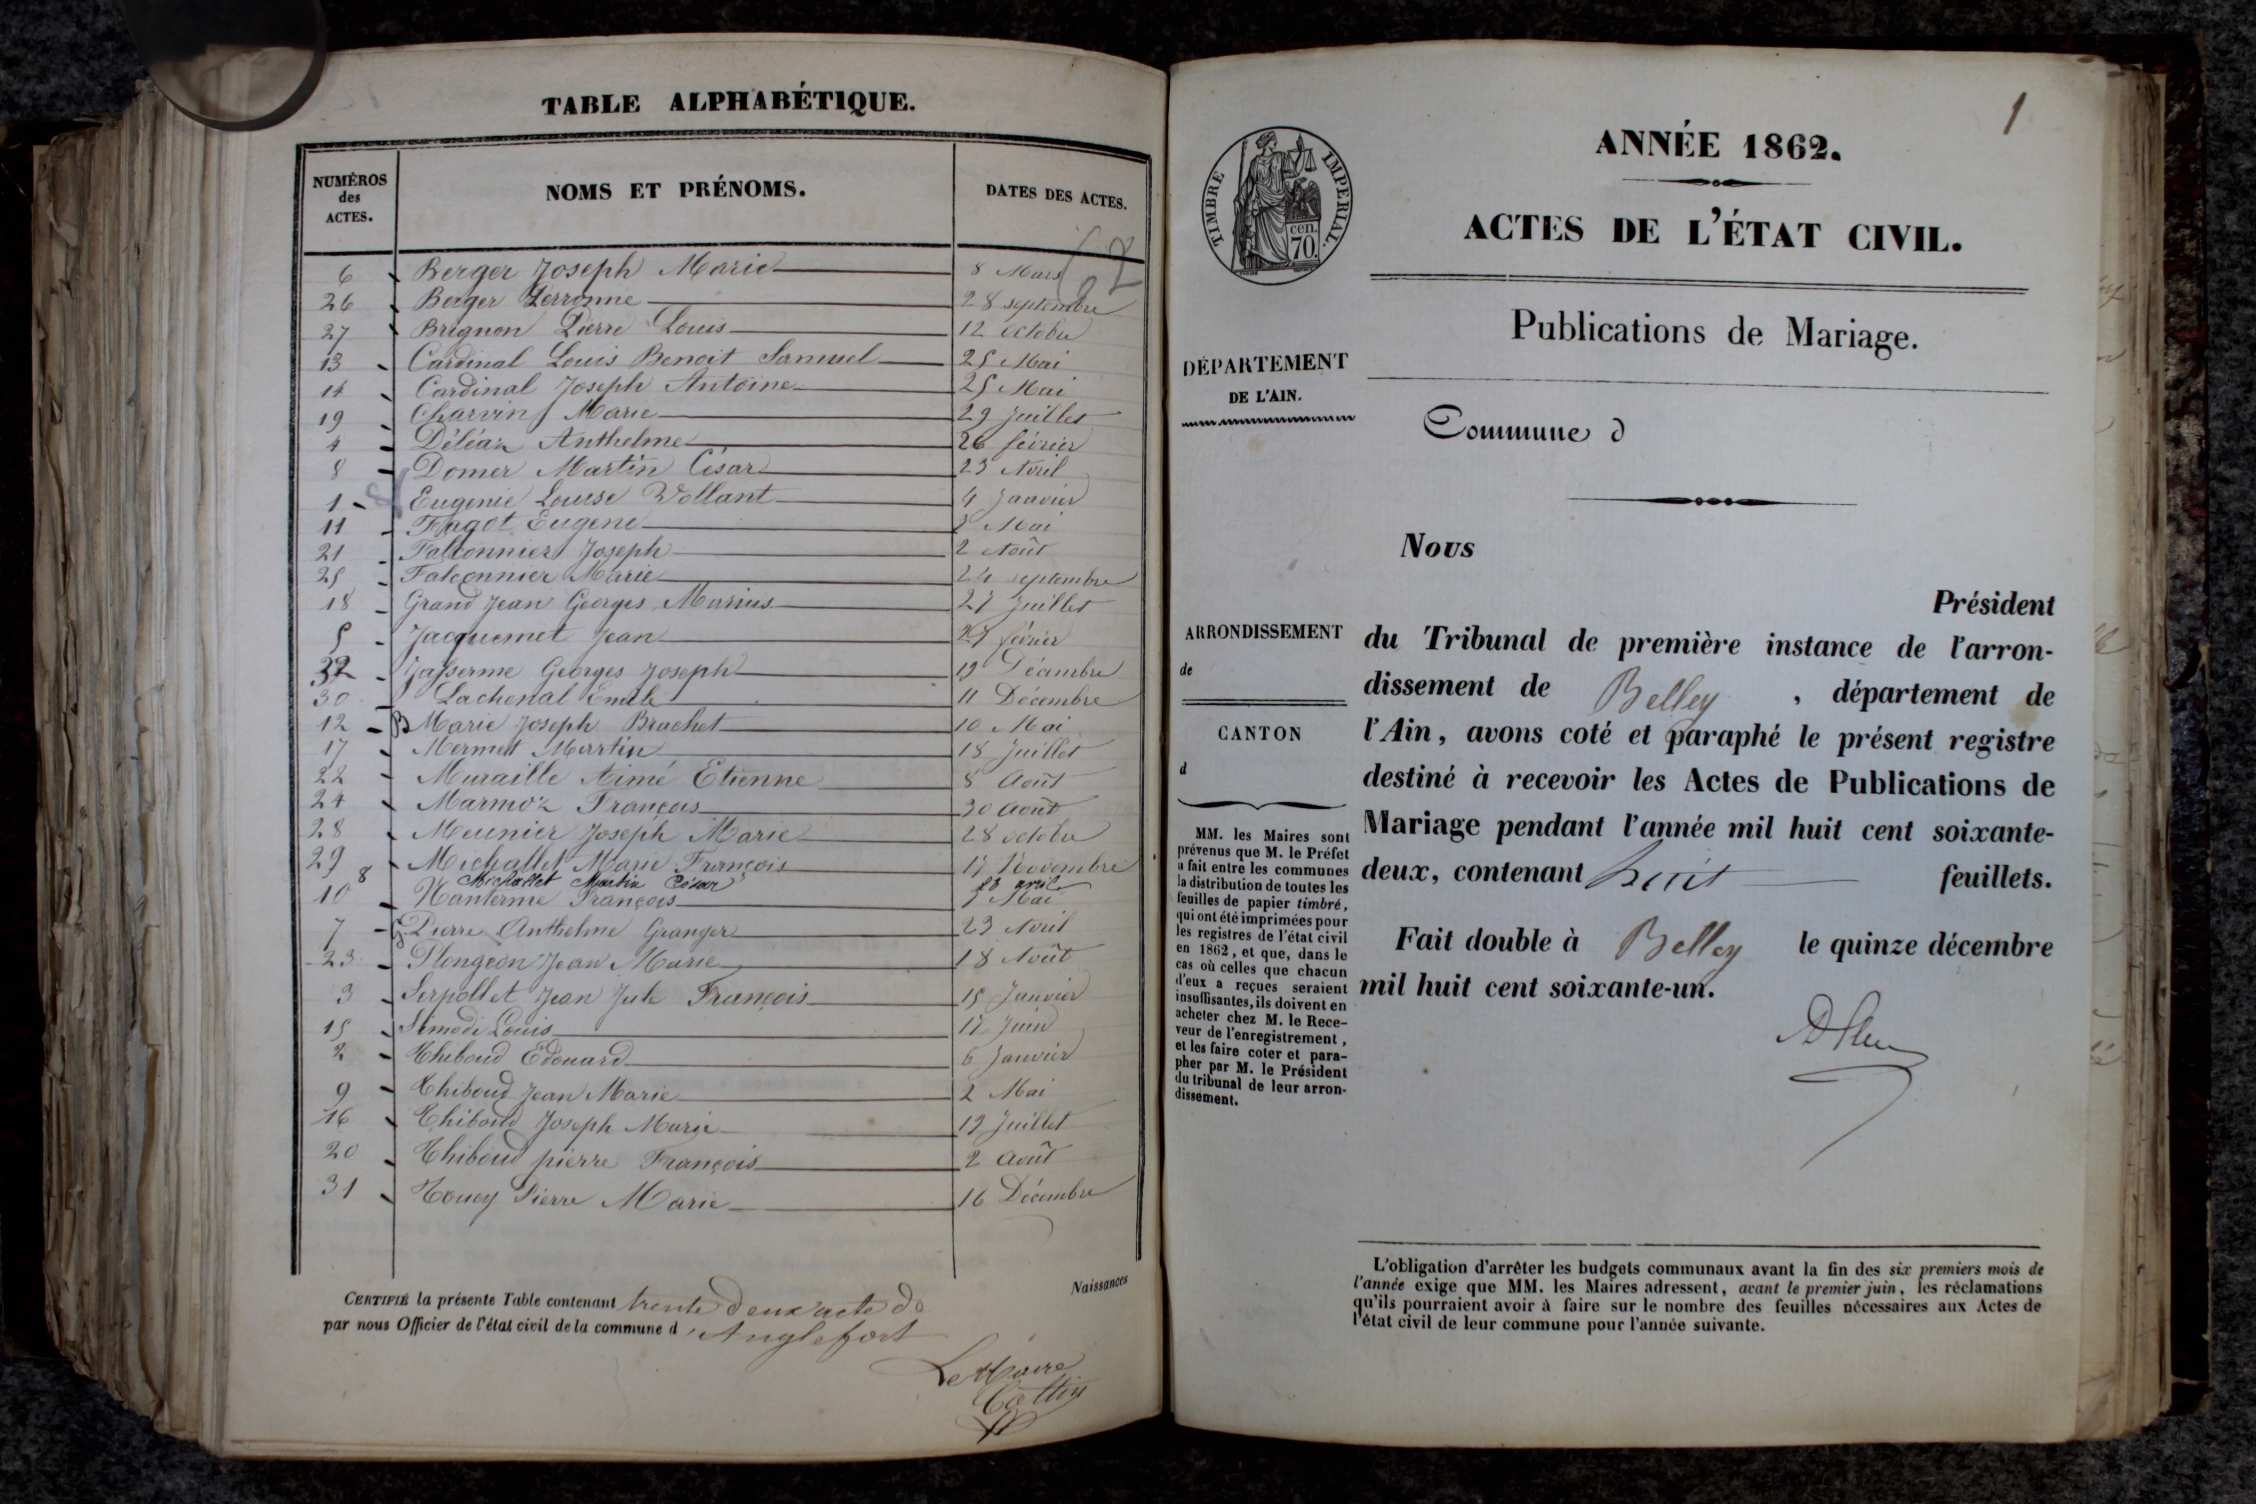 TABLE ALPHABÉTIQUE.
NUMÉROS
des
ACTES.
NOMS ET PRÉNOMS.
DATES DES ACTES.
62
6 Berger Joseph Marie 8 Mars
26 Berger Perronne 28 septembre
27 Brignon Pierre Louis 12 octobre
13 Cardinal Louis Benoit Samuel 25 Mai
14 Cardinal Joseph Antoine 25 Mai
19 Charvin Marie 29 Juillet
4 Déléaz Anthelme 26 février
8 Domer Martin César 23 Avril
1 Eugenie Louise Vollant 4 Janvier
11 Fagot Eugene Mai
21 Falconnier Joseph 2 Août
25 Falconnier Marie 24 septembre
18 Grand Jean Georges Marius 27 Juillet
5 Jacquemet Jean 27 février
32 Jasserme Georges Joseph 19 Décembre
30 Lachenal Emile 11 Décembre
12 B Marie Joseph Brachet 10 Mai
17 Mermet Martin 18 Juillet
22 Muraille Aimé Etienne 8 Août
24 Marmoz François 30 Août
28 Meunier Joseph Marie 28 octobre
29 Michallet Marie François 17 Novembre
8 Michallet Martin César 23 avril
10 Nanterme François Mai
7 G Pierre Anthelme Granger 23 Avril
23 Plongeon Jean Marie 18 Août
3 Serpollet Jean Jule François 15 Janvier
15 Simodi Louis 17 Juin
2 Thiboud Edouard 6 Janvier
9 Thiboud Jean Marie 2 Mai
16 Thiboud Joseph Marie 19 Juillet
20 Thiboud pierre François 2 Août
31 Toucy Pierre Marie 16 Décembre
CERTIFIÉ la présente Table contenant trente deux acte de Naissances
par nous Officier de l'état civil de la commune d'Anglefort
Le Maire
1
TIMBRE IMPERIAL.
cen.
70.
ANNÉE 1862.
ACTES DE L'ÉTAT CIVIL.
Publications de Mariage.
DÉPARTEMENT
DE L'AIN.
Commune d
ARRONDISSEMENT
de
CANTON
d
MM. les Maires sont
prévenus que M. le Préfet
a fait entre les communes
la distribution de toutes les
feuilles de papier timbré,
qui ont été imprimées pour
les registres de l'état civil
en 1862, et que, dans le
cas où celles que chacun
d'eux a reçues seraient
insuffisantes, ils doivent en
acheter chez M. le Rece-
veur de l'enregistrement,
et les faire coter et para-
pher par M. le Président
du tribunal de leur arron-
dissement.
Nous
Président
du Tribunal de première instance de l'arron-
dissement de Belley, département de
l'Ain, avons coté et paraphé le présent registre
destiné à recevoir les Actes de Publications de
Mariage pendant l'année mil huit cent soixante-
deux, contenant huit feuillets.
Fait double à Belley le quinze décembre
mil huit cent soixante-un.
L'obligation d'arrêter les budgets communaux avant la fin des six premiers mois de
l'année exige que MM. les Maires adressent, avant le premier juin, les réclamations
qu'ils pourraient avoir à faire sur le nombre des feuilles nécessaires aux Actes de
l'état civil de leur commune pour l'année suivante.